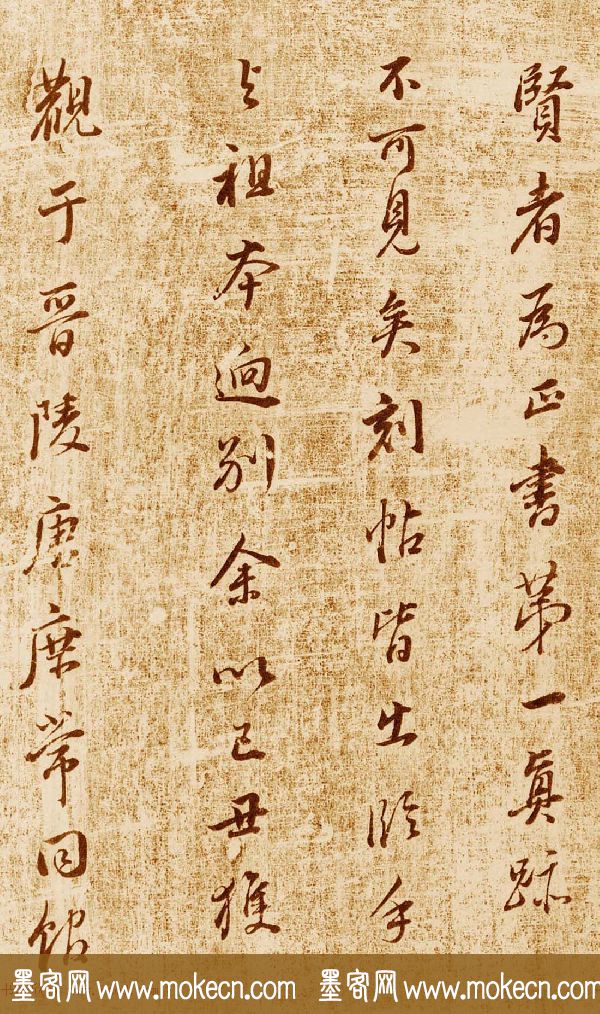 賢者為正書第一真跡
不可見矣刻帖皆出臨手
与祖本迥别余以己丑獲
觀于晋陵唐庶常同館
墨客网 www.mokecn.com 墨客网 www.mokecn.com